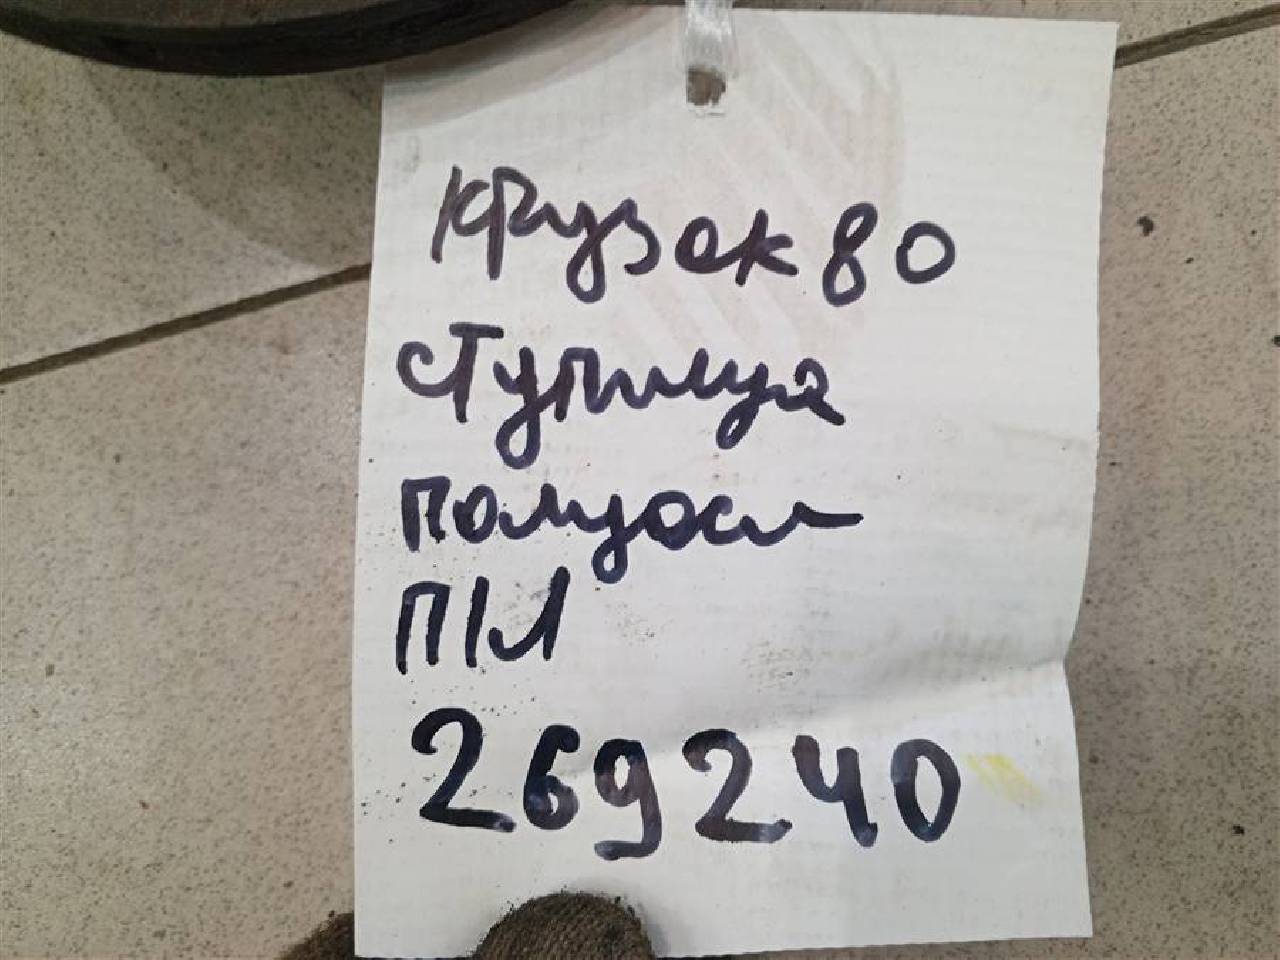 крузек 80
ступица
полуоси
П/Л
269240